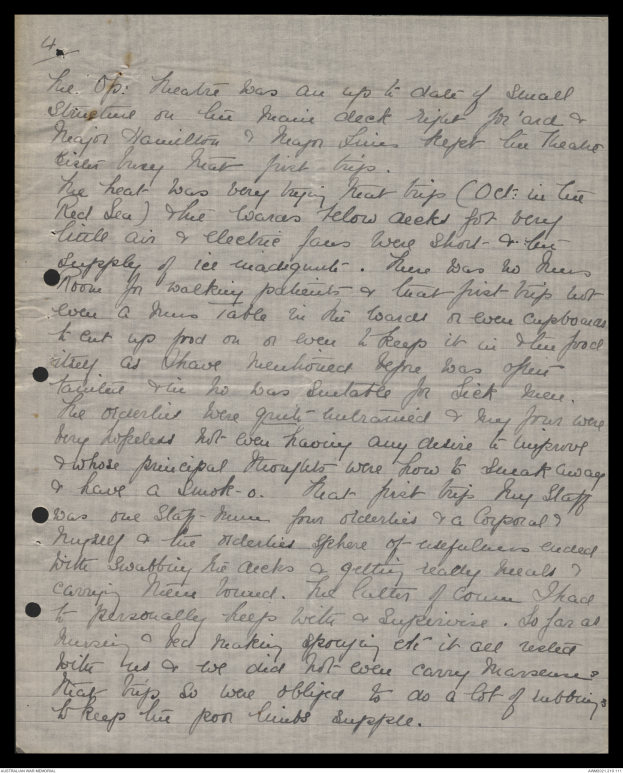 4.
The Op: Theatre was an up to date if small
Structure on the main deck right for'ard &
Major Hamilton & Major Lines kept the Theatre
Sister busy that first trip.
The heat was very trying that trip (Oct: in the
Red Sea) & the wards below decks got very
little air & electric fans were short & the
supply of ice inadequate. There was no Mess
Room for walking patients & that first trip not
even a Mess table in the wards or even cupboards
to cut up food on or even to keep it in & the food
itself as I have mentioned before was often
tainted & in no was suitable for sick men.
The orderlies were quite untrained & my four were
very hopeless not even having any desire to improve
& whose principal thoughts were how to sneak away
& have a smok-o. That first trip my Staff
was one Staff-Nurse four orderlies & a Corporal &
myself & the orderlies sphere of usefulness ended
with swabbing the decks & getting ready meals &
carrying them round. The latter of course I had
to personally help with & supervise. So far as
nursing & bed making sponging etc it all rested
with us & we did not even carry Masseuses
that trip so were obliged to do a lot of rubbing
to keep the poor limbs supple.
AUSTRALIAN WAR MEMORIAL